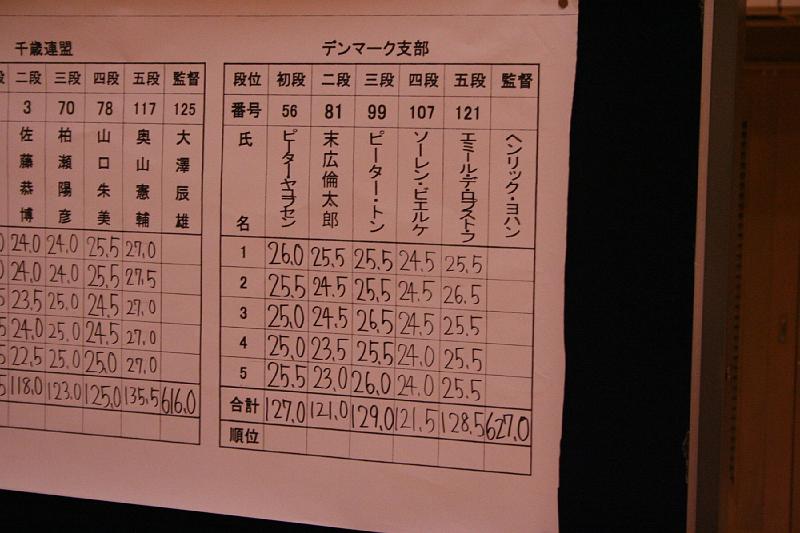 千歳連盟
段 二段 三段 四段 五段 監督
3 70 78 117 125
佐藤恭博 柏瀬陽彦 山口朱美 奥山憲輔 大澤辰雄
0 24.0 24.0 25.5 27.0
0 24.0 24.0 25.5 27.5
5 23.5 25.0 24.5 27.0
5 24.0 25.0 24.5 27.0
5 22.5 25.0 25.0 29.0
5 118.0 123.0 125.0 135.5 616.0
デンマーク支部
段位 初段 二段 三段 四段 五段 監督
番号 56 81 99 107 121
氏名 ピーターヤコブセン 末広倫太郎 ピーター・トン ソーレン・ビエルケ エミールデ・ロブストラ ヘンリック・ヨハン
1 26.0 25.5 25.5 24.5 25.5
2 25.5 24.5 25.5 24.5 26.5
3 25.0 24.5 26.5 24.5 25.5
4 25.0 23.5 25.5 24.0 25.5
5 25.5 23.0 26.0 24.0 25.5
合計 127.0 121.0 129.0 121.5 128.5 627.0
順位